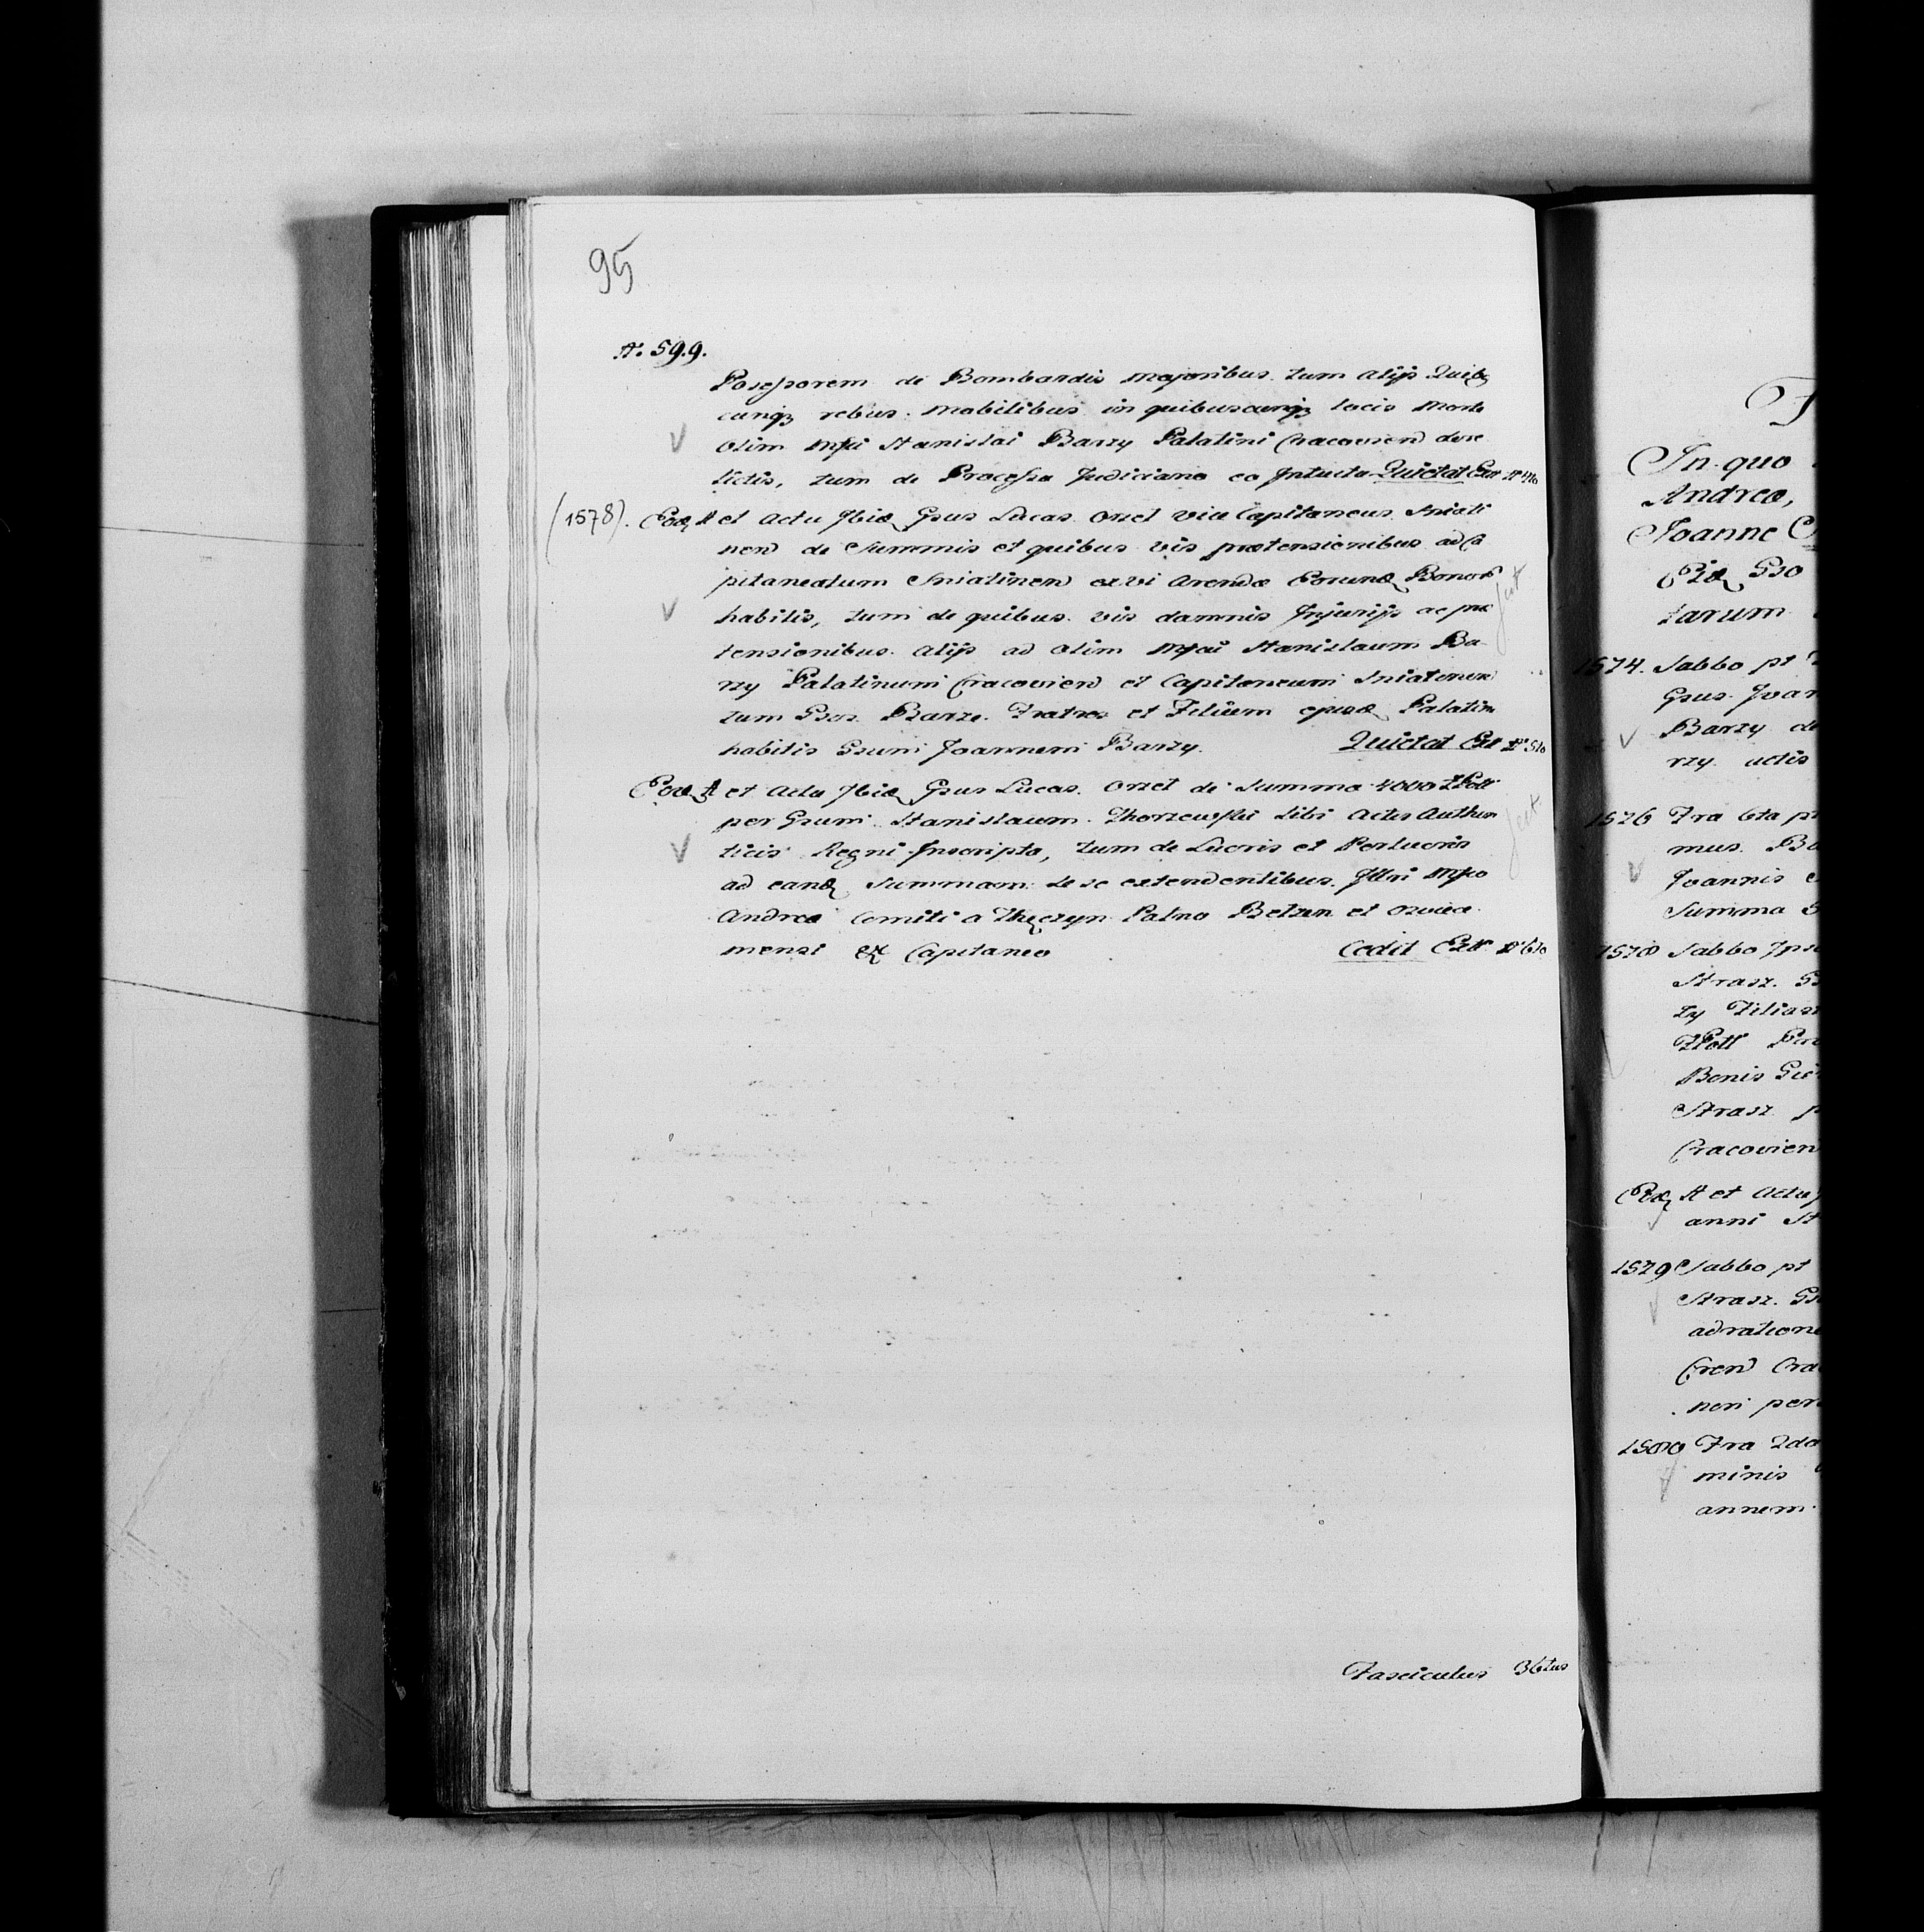 95
N. 59.9.
Possessorem de Bombardis majoribus tum alijs Quibq
cunqz rebus mobilibus in quibuscunqz locis morte
olim Mfci Stanislai Barzy Palatini Cracovien dere
lictis, tum de Processu Judiciario eo Intuitu Quietat Extr
(1578). Eod A et Actu Ibid Gsus Lucas Orzel vice Capitaneus Sniati
nen de Summis et quibus vis prætensionibus ad Ca
pitaneatum Sniatinen ex vi Arendæ Eorund Bonor
habitis, tum de quibus vis damnis Injurijs ac præ
tensionibus alijs ad olim Mfcū Stanislaum Ba
rzy Palatinum Cracovien et Capitaneum Sniatinen
tum Gsos Barze Fratres et Filium ejusd Palatini
habitis Gsum Joannem Barzy. Quietat Extr
Eod A et Actu Ibid Gsus Lucas Orzel de Summa 4000 Poll
per Gsum Stanislaum Thorzewski sibi Actis Authen
ticis Regni Inscripta, tum de Lucris et Perlucris
ad eand Summam se se extendentibus Illri Mfco
Andreæ Comiti a Theczyn Palno Belzen et
mensi Capitaneo Cedit Extr
Fasciculus 36tus
In quo
Andreæ,
Joanne
Gso
tarum
1574. Sabbo pt
Gsus Joan
Barzy de
rzy actis
1576 Fra 6ta
mus Ba
Joannis
Summa
1578 Sabbo
Strasz. Gs
Filias
Poll
Bonis
Strasz
Cracovien
Eod A et Actu
anni St
1579 Sabbo pt
Strasz. Gs
ad ratione
Cra
non per
Fra 2da
minis
annem